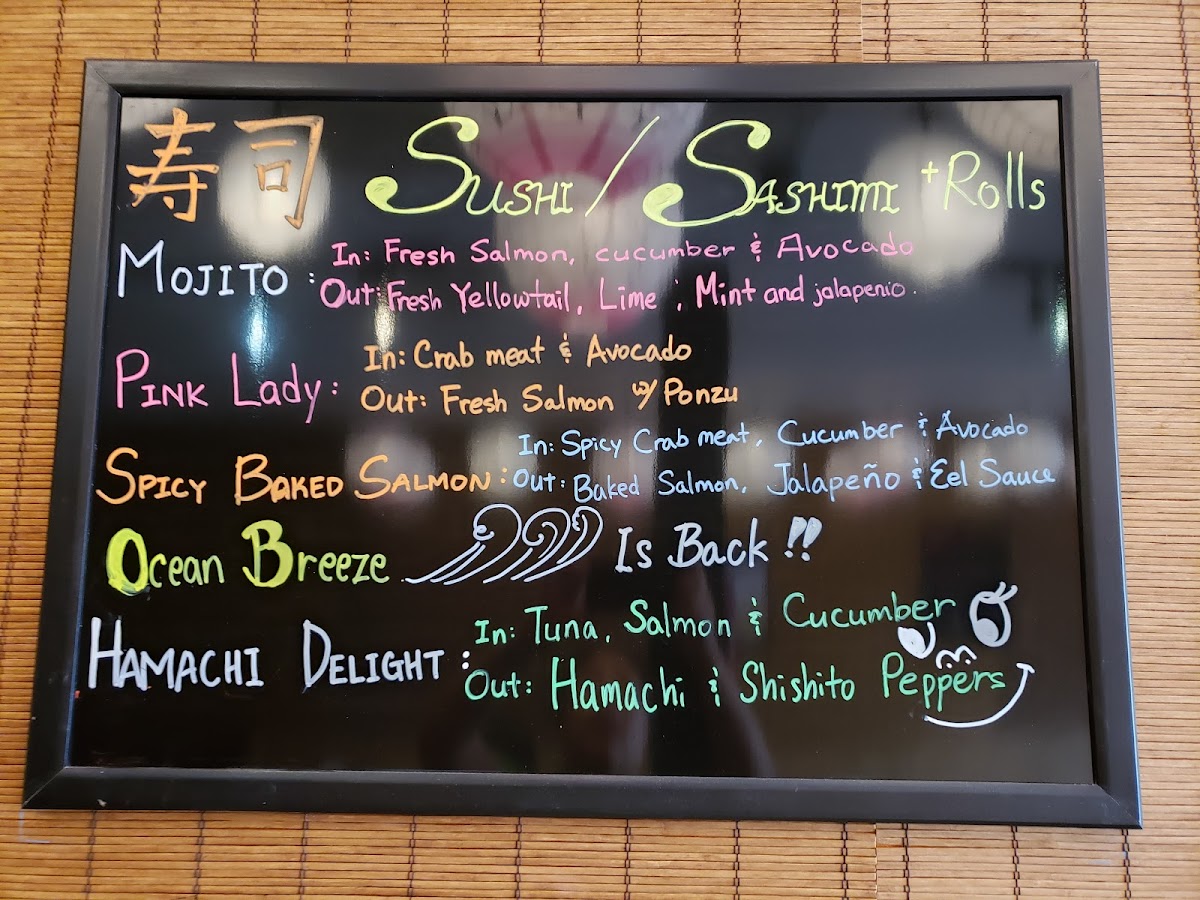 寿司 Sushi / Sashimi + Rolls
Mojito : In: Fresh Salmon, cucumber & Avocado
Out: Fresh Yellowtail, Lime, Mint and jalapenio.
Pink Lady: In: Crab meat & Avocado
Out: Fresh Salmon w/ Ponzu
Spicy Baked Salmon: In: Spicy Crab meat, Cucumber & Avocado
Out: Baked Salmon, Jalapeño & Eel Sauce
Ocean Breeze Is Back!!
Hamachi Delight: In: Tuna, Salmon & Cucumber
Out: Hamachi & Shishito Peppers